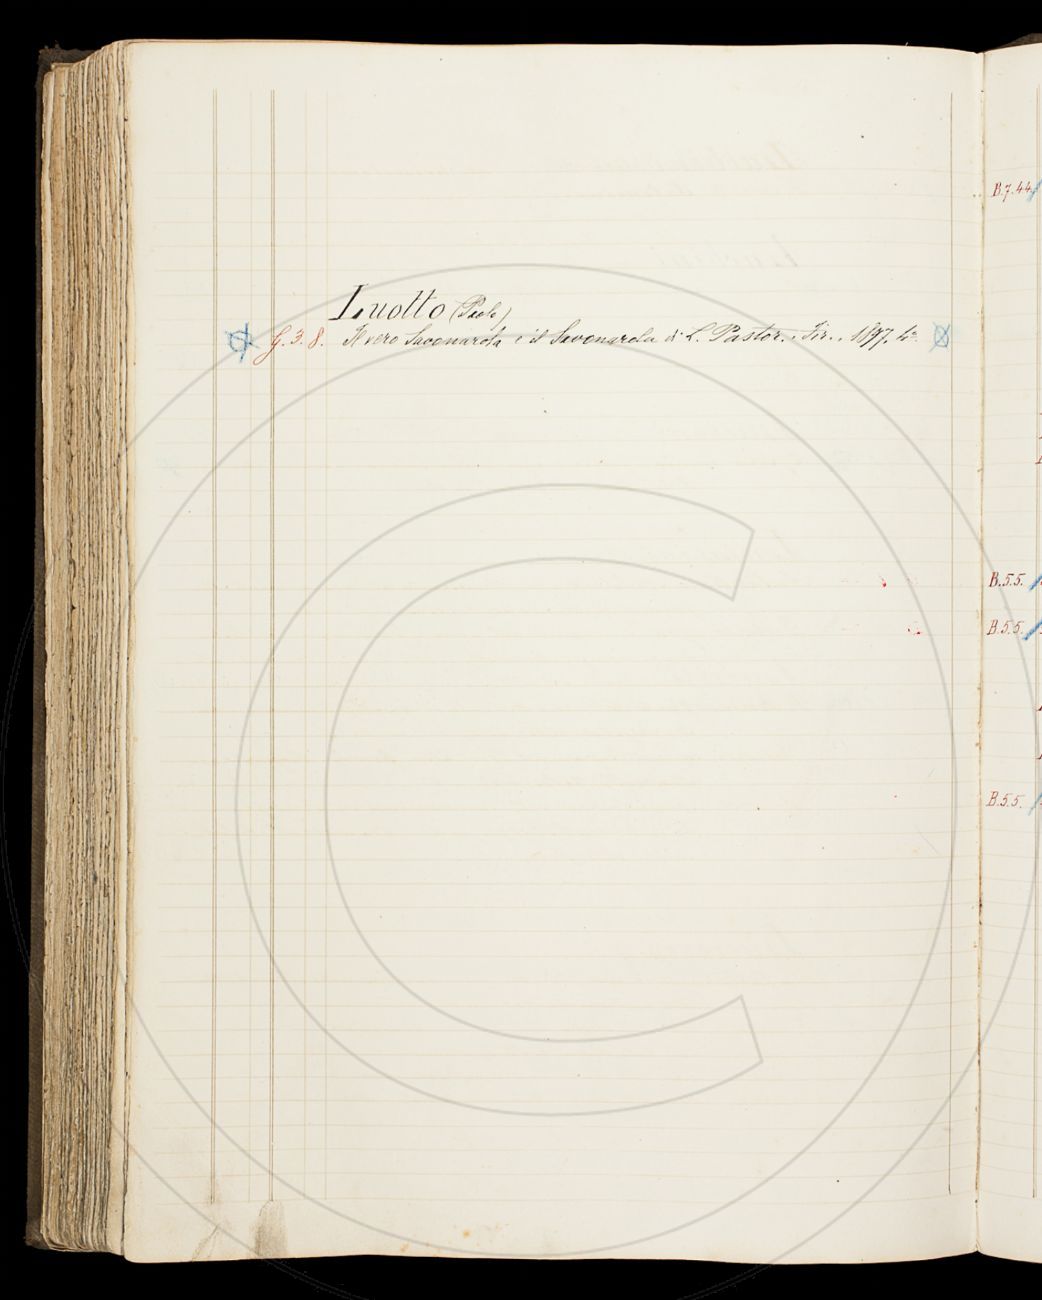 Luotto (Paolo)
G.3.8. Il vero Savonarola e il Savonarola di L. Pastor. Fir., 1897. 4°
B.7.44
B.5.5.
B.5.5.
B.5.5.